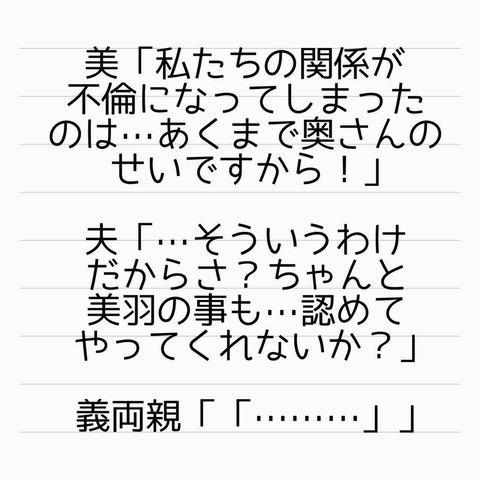 美「私たちの関係が
不倫になってしまった
のは…あくまで奥さんの
せいですから！」
夫「…そういうわけ
だからさ？ちゃんと
美羽の事も…認めて
やってくれないか？」
義両親「「………」」